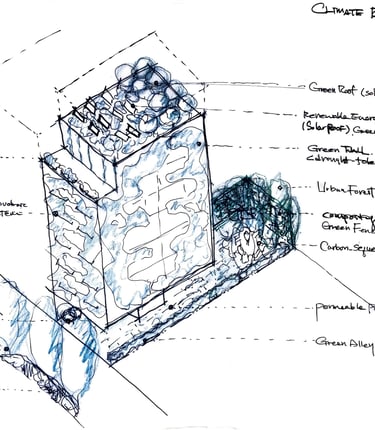 CLIMATE B
Green Roof (so
Renewable Ener
(Solar Roof) Gree
Green Wall
drought-tole
Urban Forest
Green Fen
Carbon Seque
permeable P
Green Alley